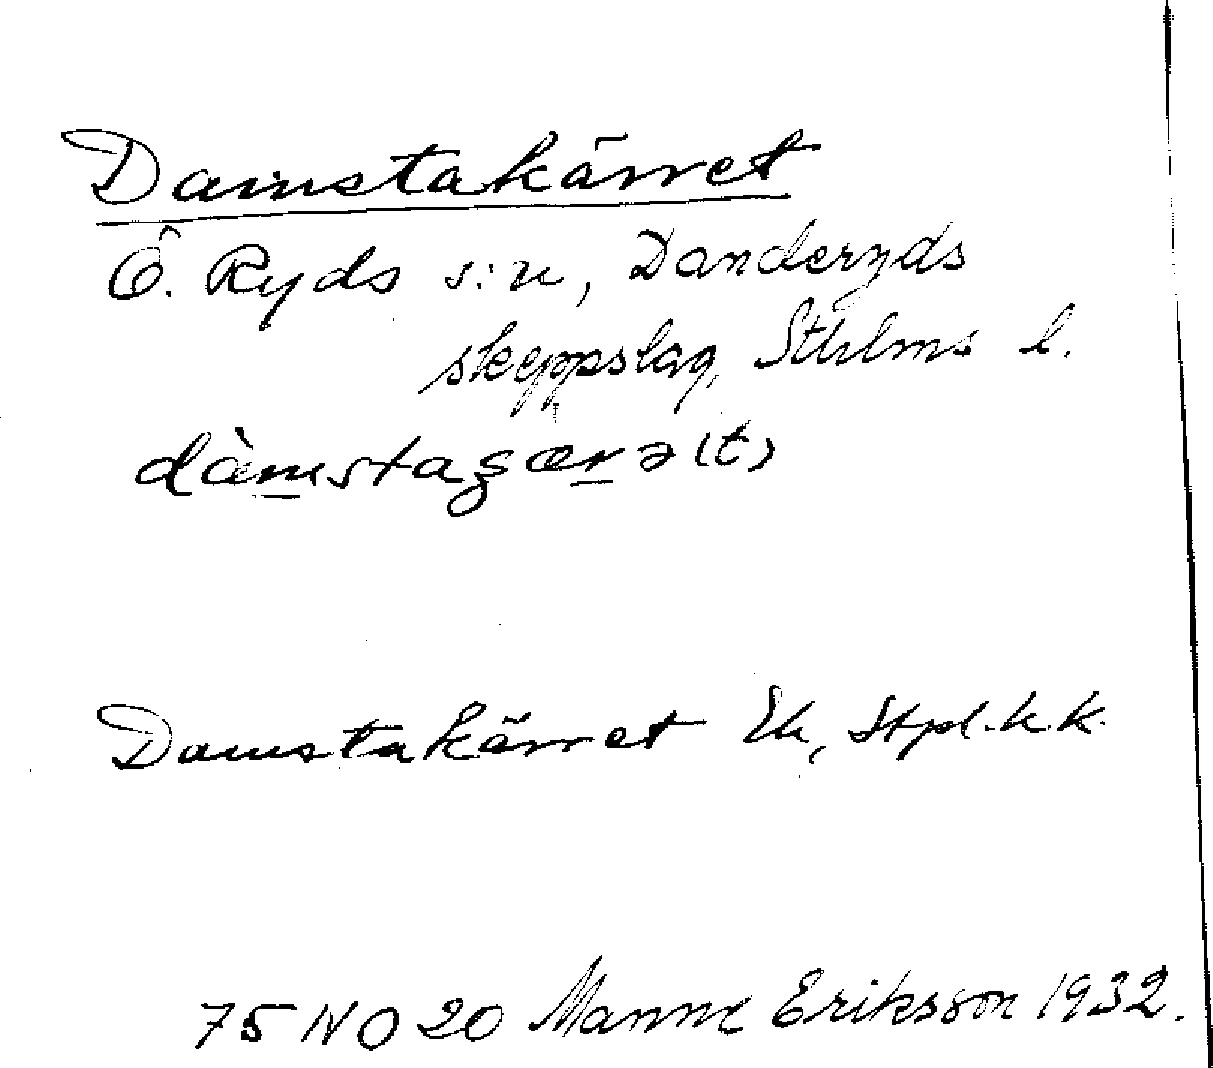 Damstakärret
Ö. Ryds s:n, Danderyds
skeppslag, Sthlms l.
dàmstagærə(t)
Damstakärret Ek, Stpl.k.k.
75 NO 20 Manne Eriksson 1932.